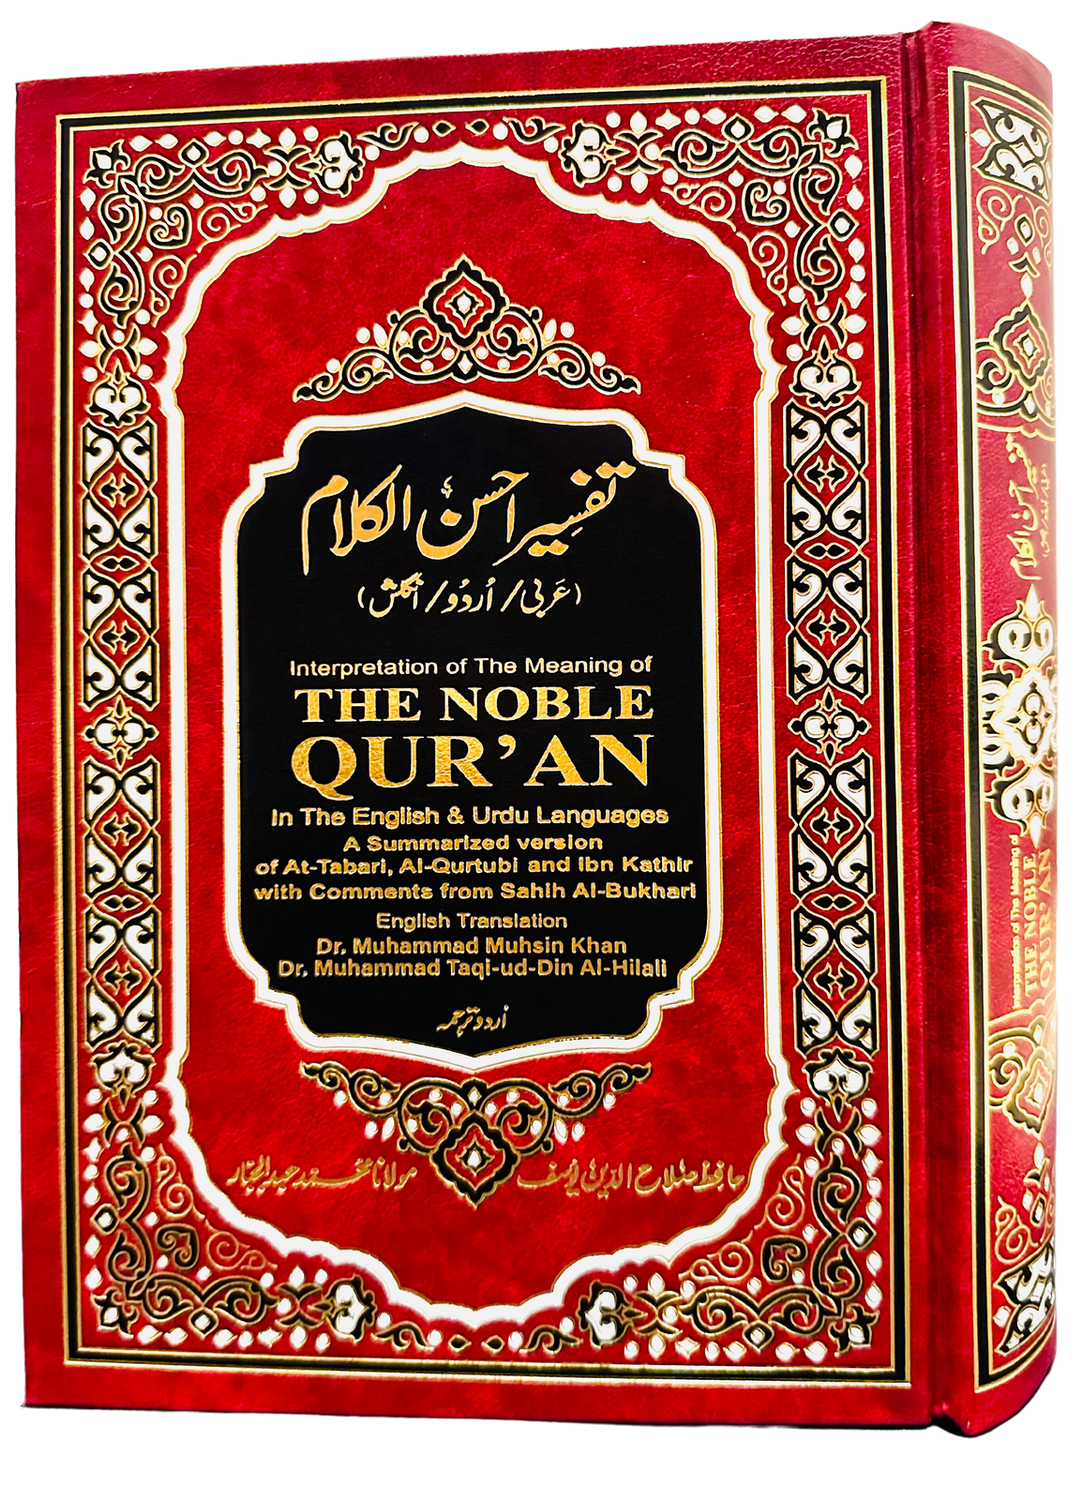 تفسیر احسن الکلام
(عَربی/اُردُو/انگلش)
Interpretation of The Meaning of
THE NOBLE
QUR'AN
In The English & Urdu Languages
A Summarized version
of At-Tabari, Al-Qurtubi and Ibn Kathir
with Comments from Sahih Al-Bukhari
English Translation
Dr. Muhammad Muhsin Khan
Dr. Muhammad Taqi-ud-Din Al-Hilali
اُردو ترجمہ
حافظ صلاح الدین یُوسف
مولانا محمد عبدالجبار
تفسیر احسن الکلام
Interpretation of The Meaning of
THE NOBLE
QUR'AN